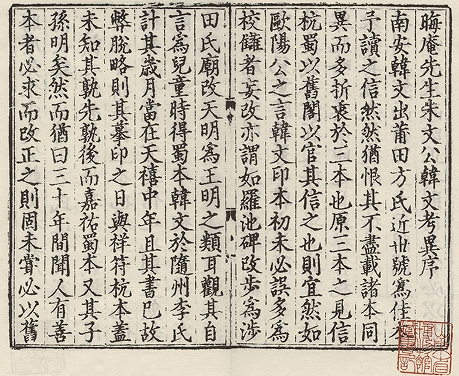 晦庵先生朱文公韓文考異序
南安韓文出莆田方氏近世號為佳本
予讀之信然然猶恨其不盡載諸本同
異而多折衷於三本也原三本之見信
杭蜀以舊閣以官其信之也則宜然如
歐陽公之言韓文印本初未必誤多為
校讎者妄改亦謂如羅池碑改步為涉
田氏廟改天明為王明之類耳觀其自
言為兒童時得蜀本韓文於隨州李氏
計其歲月當在天禧中年且其書已故
弊脫略則其摹印之日與祥符杭本蓋
未知其孰先孰後而嘉祐蜀本又其子
孫明矣然而猶曰三十年間聞人有善
本者必求而改正之則固未嘗必以舊